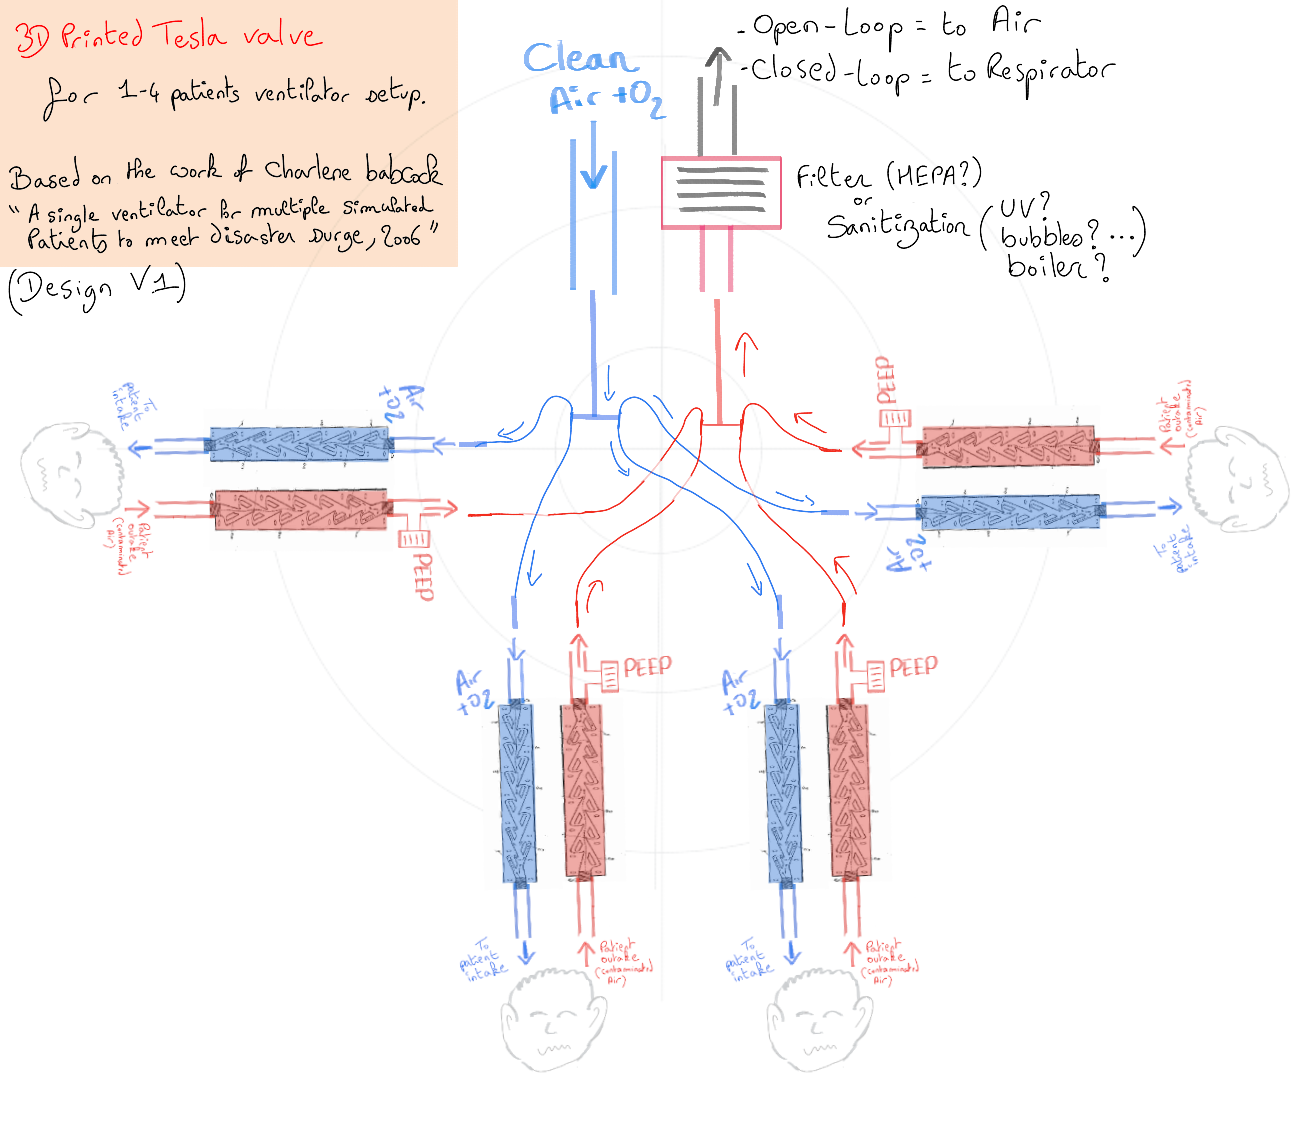 3D Printed Tesla valve
for 1-4 patients ventilator setup.
Based on the work of Charlene babcock
"A single ventilator for multiple simulated
Patients to meet disaster surge, 2006"
(Design V1)
Clean
Air +O2
- Open-Loop = to Air
- Closed-Loop = to Respirator
Filter (HEPA?)
or
Sanitization (UV?
bubbles? ...)
boiler?
To
patient
intake
Air
+O2
Patient
outake
(contaminated
Air)
PEEP
PEEP
Patient
outake
(contaminated
Air)
Air
+O2
To
patient
intake
Air
+O2
PEEP
To
patient
intake
Patient
outake
(contaminated
Air)
Air
+O2
PEEP
To
patient
intake
Patient
outake
(contaminated
Air)